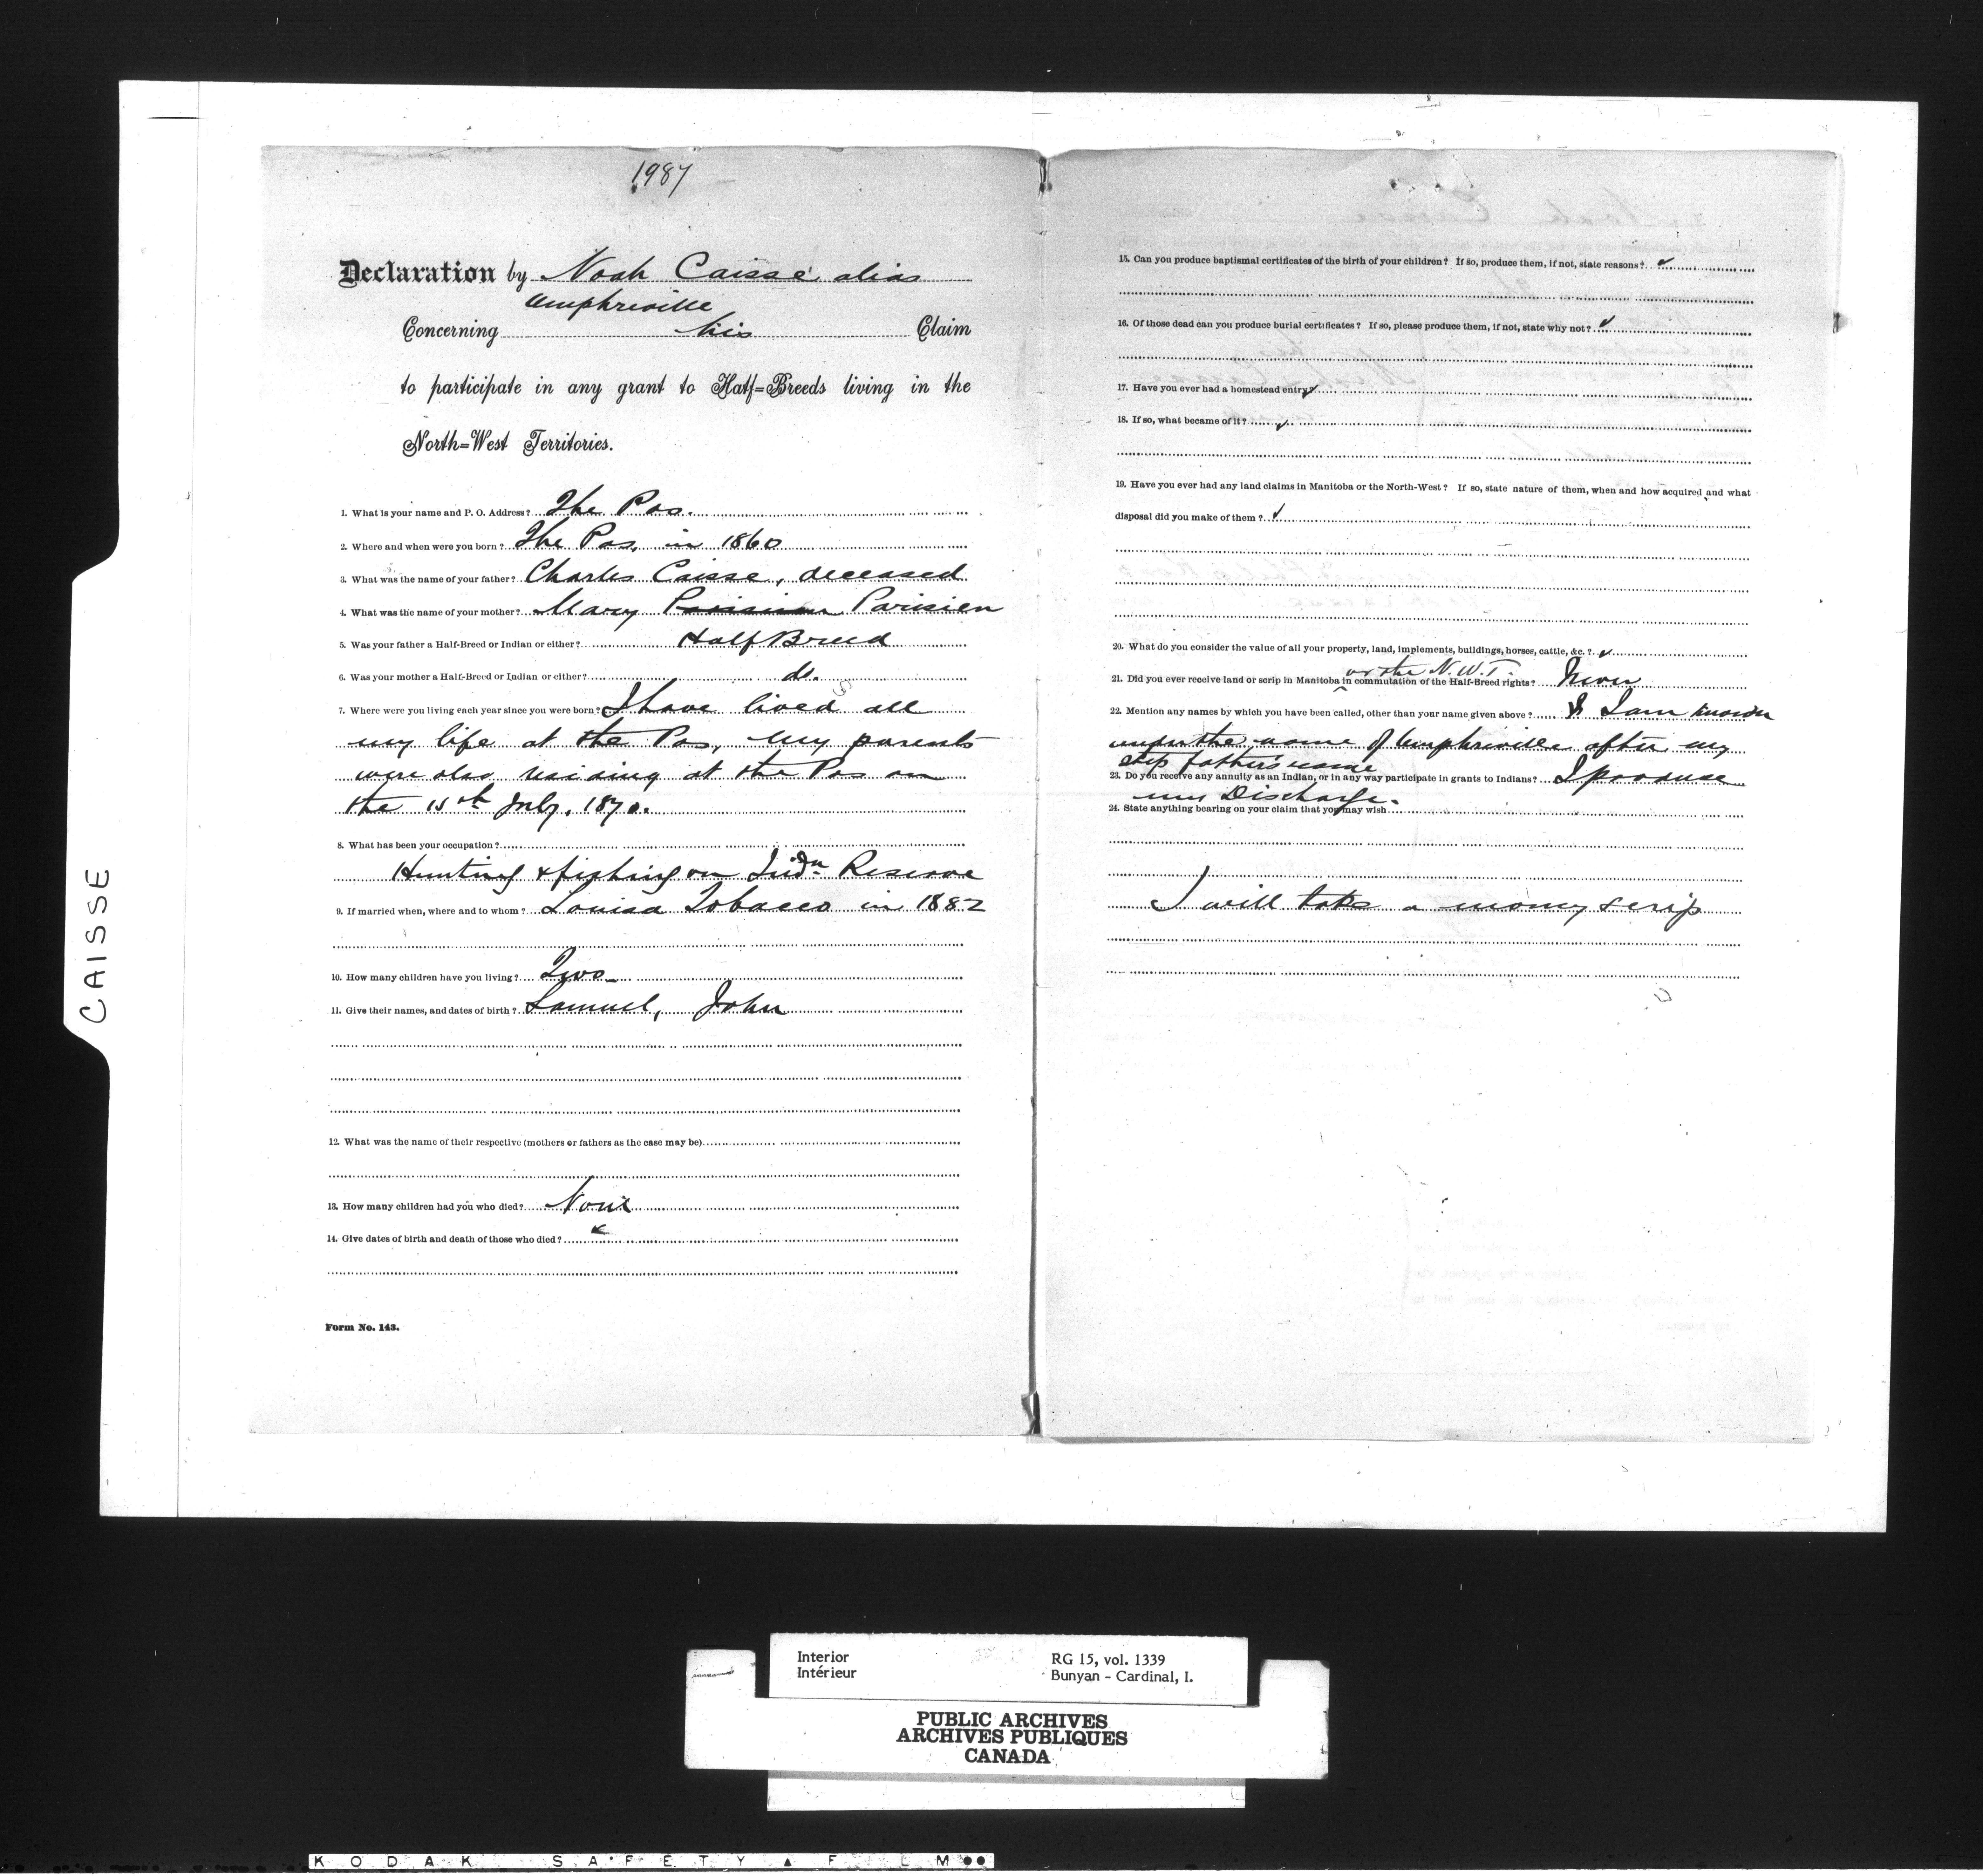 1987
Declaration by Noah Caisse alias
Umphreville
Concerning his Claim
to participate in any grant to Half=Breeds living in the
North=West Territories.
1. What is your name and P. O. Address? The Pas.
2. Where and when were you born? The Pas, in 1860
3. What was the name of your father? Charles Caisse, deceased
4. What was the name of your mother? Mary Parisien
5. Was your father a Half-Breed or Indian or either? Half Breed
6. Was your mother a Half-Breed or Indian or either? do.
7. Where were you living each year since you were born? I have lived all
my life at the Pas, my parents
were also residing at the Pas on
the 15th July, 1870.
8. What has been your occupation?
Hunting & fishing on Indn Reserve
9. If married when, where and to whom? Louisa Tobacco in 1882
10. How many children have you living? Two
11. Give their names, and dates of birth? Samuel, John
12. What was the name of their respective (mothers or fathers as the case may be)
13. How many children had you who died? None
14. Give dates of birth and death of those who died?
Form No. 143.
15. Can you produce baptismal certificates of the birth of your children? If so, produce them, if not, state reasons?
16. Of those dead can you produce burial certificates? If so, please produce them, if not, state why not?
17. Have you ever had a homestead entry?
18. If so, what became of it?
19. Have you ever had any land claims in Manitoba or the North-West? If so, state nature of them, when and how acquired and what
disposal did you make of them?
20. What do you consider the value of all your property, land, implements, buildings, horses, cattle, &c.?
or the N.W.T.
21. Did you ever receive land or scrip in Manitoba in commutation of the Half-Breed rights? Never
22. Mention any names by which you have been called, other than your name given above? I am known
under the name of Umphreville after my
step father's name
23. Do you receive any annuity as an Indian, or in any way participate in grants to Indians? I produce
my Discharge.
24. State anything bearing on your claim that you may wish
I will take a money scrip
CAISSE
Interior
Intérieur
RG 15, vol. 1339
Bunyan - Cardinal, I.
PUBLIC ARCHIVES
ARCHIVES PUBLIQUES
CANADA
KODAK SAFETY FILM